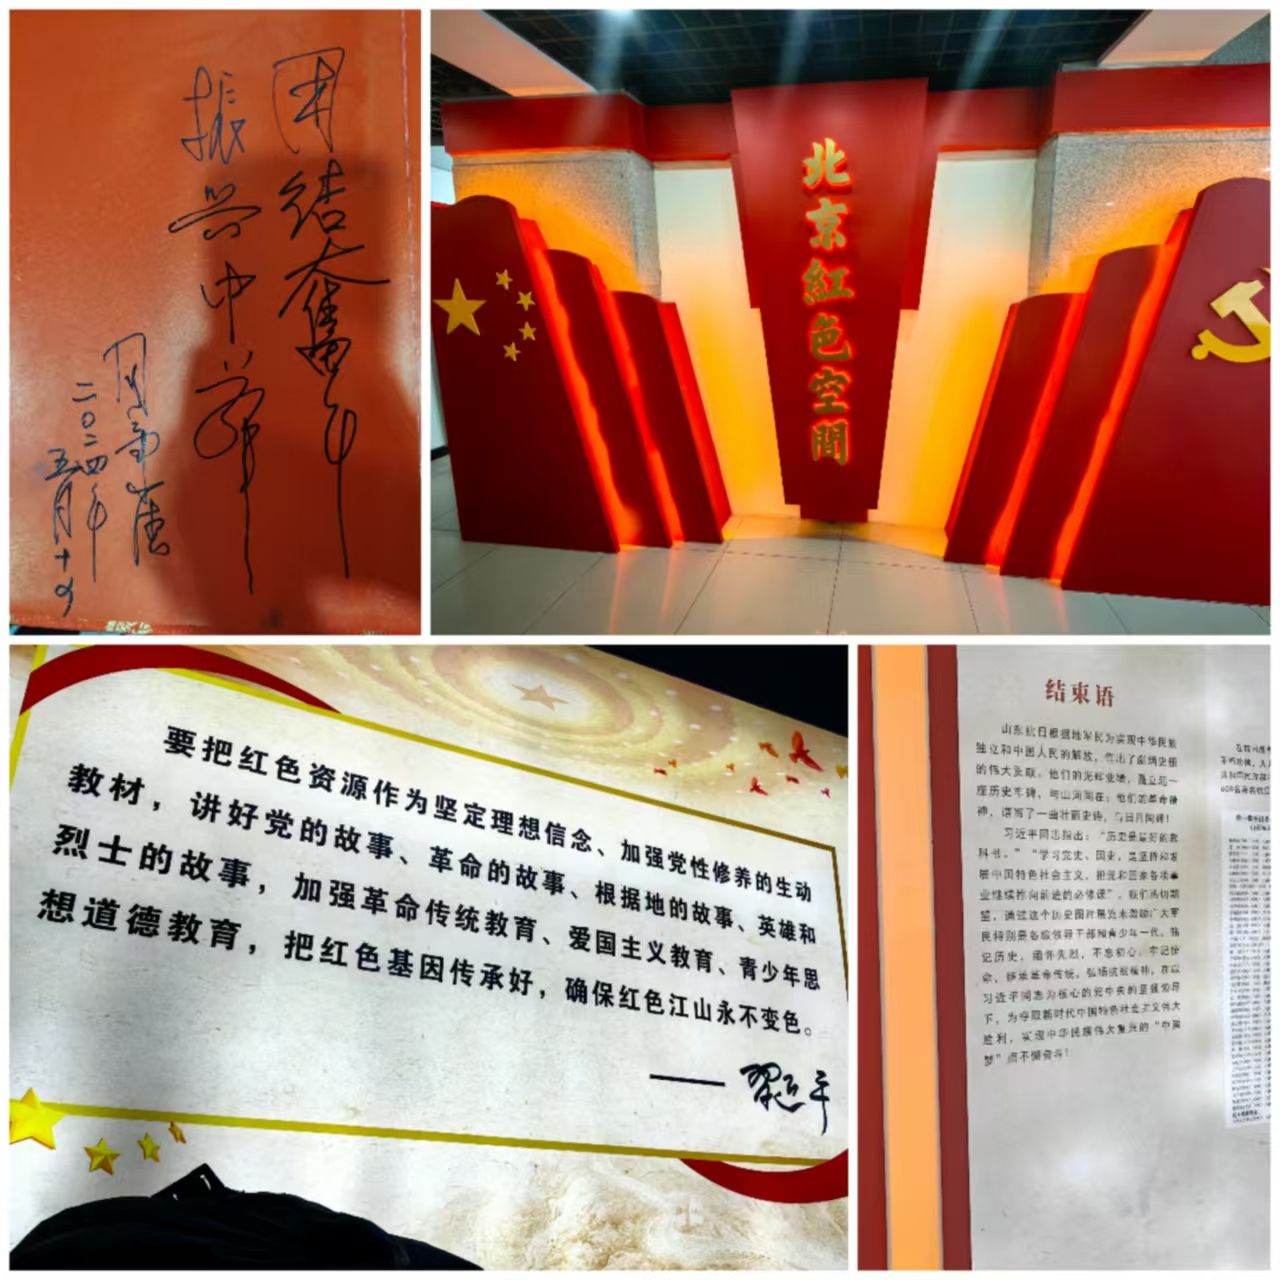 团结奋斗
振兴中华
二〇二四年
五月十九
北京紅色空間
要把红色资源作为坚定理想信念、加强党性修养的生动
教材，讲好党的故事、革命的故事、根据地的故事、英雄和
烈士的故事，加强革命传统教育、爱国主义教育、青少年思
想道德教育，把红色基因传承好，确保红色江山永不变色。
——习近平
结束语
山东抗日根据地军民为实现中华民族
独立和中国人民的解放，作出了彪炳史册
的伟大贡献。他们的光辉业绩，矗立起一
座历史丰碑，与山河同在；他们的革命精
神，谱写了一曲壮丽史诗，与日月同辉！
习近平同志指出：“历史是最好的教
科书。”“学习党史、国史，是坚持和发
展中国特色社会主义、把党和国家各项事
业继续推向前进的必修课”。我们热切期
望，通过这个历史图片展览来激励广大军
民特别是各级领导干部和青少年一代，铭
记历史，缅怀先烈，不忘初心，牢记使
命，继承革命传统，弘扬抗战精神，在以
习近平同志为核心的党中央的坚强领导
下，为夺取新时代中国特色社会主义伟大
胜利，实现中华民族伟大复兴的“中国
梦”而不懈奋斗！